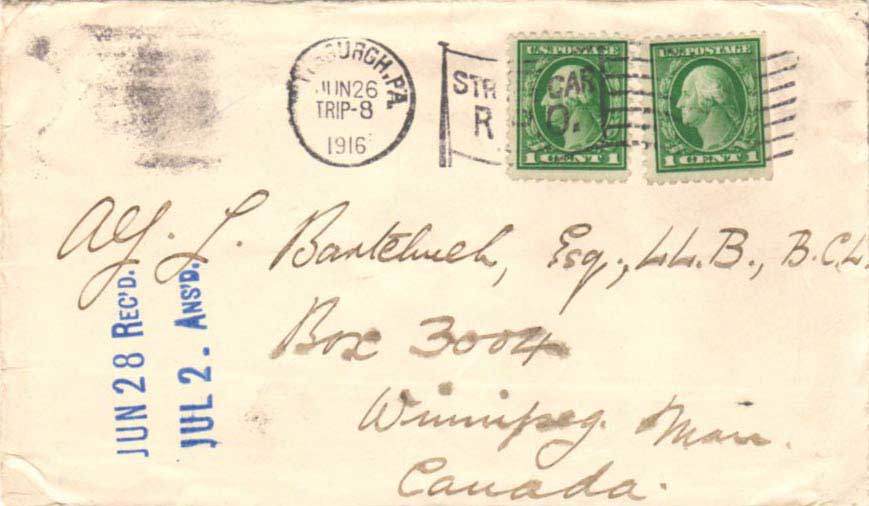 TSBURGH, PA.
JUN 26
TRIP-8
1916
STR CAR
R. P. O.
U.S. POSTAGE
1 CENT 1
U.S. POSTAGE
1 CENT 1
L. Bartchuck, Esq., LL.B., B.C.L.
Box 3004
Winnipeg. Man.
Canada.
JUN 28 REC'D.
JUL 2. ANS'D.